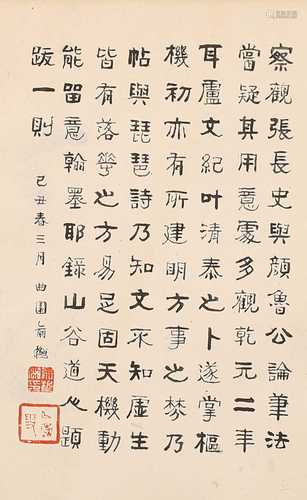 察觀張長史與顔魯公論筆法
當疑其用意處多觀乾元二年
耳盧文紀叶清泰之卜遂掌樞
機初亦有所建明方事之棼乃
帖與琵琶詩乃知文采知虛生
皆有落夢之方易足固天機動
能留意翰墨耶錄山谷道人題
跋一則
己丑春三月 曲園俞樾